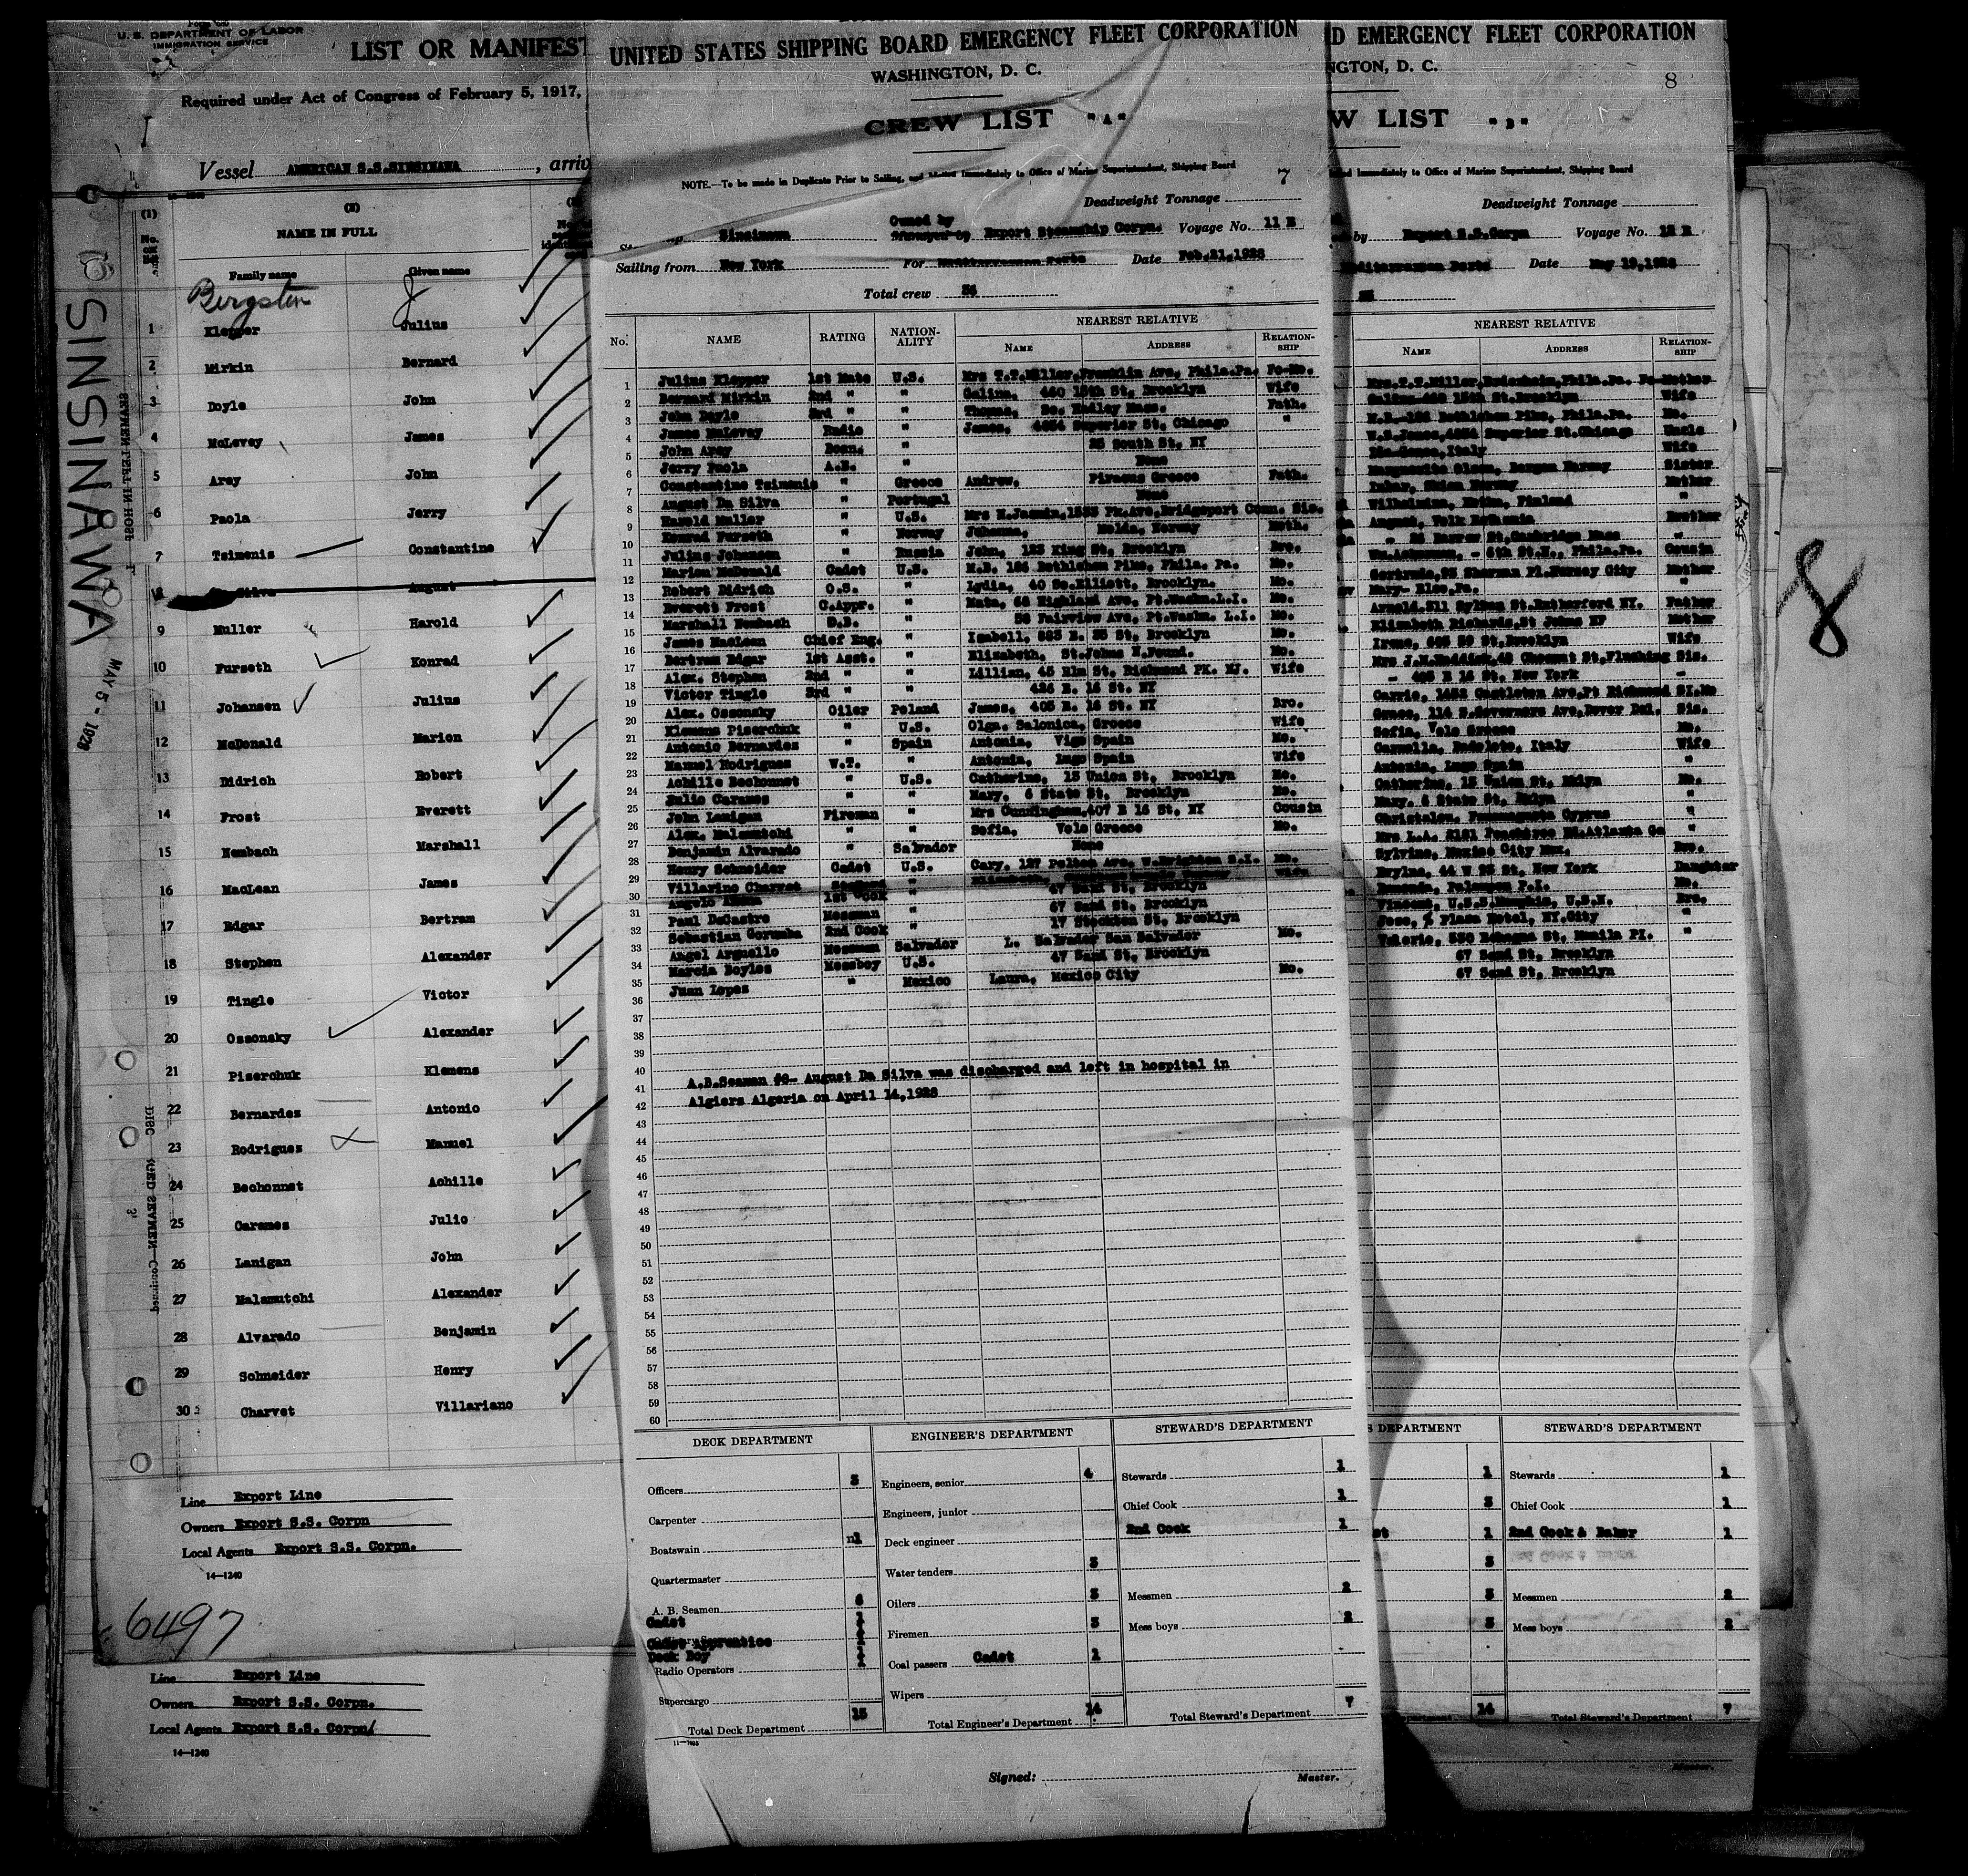 U. S. DEPARTMENT OF LABOR
IMMIGRATION SERVICE
LIST OR MANIFEST
Required under Act of Congress of February 5, 1917,
Vessel AMERICAN S.S.SINSINAWA, arriv
SINSINAWA
MAY 5 - 1928
(1) (2)
NAME IN FULL
Family name Given name
Bergsten J
1 Klepper Julius
2 Mirkin Bernard
3 Doyle John
4 McLevey James
5 Arey John
6 Paola Jerry
7 Tsimenis Constantine
Silva August
9 Muller Harold
10 Furseth Konrad
11 Johansen Julius
12 McDonald Marion
13 Didrich Robert
14 Frost Everett
15 Nembach Marshall
16 MacLean James
17 Edgar Bertram
18 Stephen Alexander
19 Tingle Victor
20 Ossonsky Alexander
21 Piserchuk Klemens
22 Bernardez Antonio
23 Rodriguez Manuel
24 Bechonnet Achille
25 Carames Julio
26 Lanigan John
27 Malamutchi Alexander
28 Alvarado Benjamin
29 Schneider Henry
30 Charvet Villariano
Line Export Line
Owners Export S.S. Corpn
Local Agents Export S.S. Corpn.
14—1240
6497
Line Export Line
Owners Export S.S. Corpn.
Local Agents Export S.S. Corpn
14—1240
UNITED STATES SHIPPING BOARD EMERGENCY FLEET CORPORATION
WASHINGTON, D. C.
CREW LIST "A"
NOTE.—To be made in Duplicate Prior to Sailing, and Mailed Immediately to Office of Marine Superintendent, Shipping Board
7
Deadweight Tonnage
Sinsinawa Owned by Export Steamship Corpn. Voyage No. 11 E
Sailing from New York For Mediterranean Ports Date Feb.21,1928
Total crew
No. NAME RATING NATION-ALITY NEAREST RELATIVE
NAME ADDRESS RELATION-SHIP
1 Julius Klepper 1st Mate U.S. Mrs T.T.Miller,Franklin Ave, Phila.Pa. Fo-Mo.
2 Bernard Mirkin 2nd " " Galina, 460 15th St, Brooklyn Wife
3 John Doyle 3rd " " Thomas, So. Hadley Mass. Fath.
4 James McLevey Radio " James, 4854 Superior St, Chicago "
5 John Arey Bosn. " 25 South St, NY
6 Jerry Paola A.B. " None
7 Constantine Tsimenis " Greece Andrew, Piraeus Greece Fath.
8 August Da Silva " Portugal None
9 Harold Muller " U.S. Mrs H.Jasmin,1535 Pk.Ave,Bridgeport Conn. Sis.
10 Konrad Furseth " Norway Johanna, Molde, Norway Moth.
11 Julius Johansen " Russia John, 123 King St, Brooklyn Bro.
12 Marion McDonald Cadet U.S. M.B. 186 Bethlehem Pike, Phila. Pa. Mo.
13 Robert Didrich O.S. " Lydia, 40 So.Elliott, Brooklyn. Mo.
14 Everett Frost C.Appr. " Meta, 68 Highland Ave, Pt.Washn.L.I. Mo.
15 Marshall Nembach D.B. " 56 Fairview Ave, Pt.Washn. L.I. Mo.
16 James MacLean Chief Eng. " Isabell, 883 E. 35 St, Brooklyn Mo.
17 Bertram Edgar 1st Asst. " Elizabeth, St.Johns N.Found. Mo.
18 Alex. Stephen 2nd " " Lillian, 45 Elm St, Richmond PK. NJ. Wife
19 Victor Tingle 3rd " " 426 E. 16 St. NY
20 Alex. Ossonsky Oiler Poland James, 405 E. 16 St. NY Bro.
21 Klemens Piserchuk " U.S. Olga, Salonica, Greece Wife
22 Antonio Bernardez " Spain Antonia, Vigo Spain Mo.
23 Manuel Rodriguez W.T. " Antonia, Lugo Spain Wife
24 Achille Bechonnet " U.S. Catherine, 13 Union St, Brooklyn Mo.
25 Julio Carames " " Mary, 6 State St, Brooklyn Mo.
26 John Lanigan Fireman " Mrs Cunningham,407 E 16 St, NY Cousin
27 Alex. Malamutchi " " Sofia, Volo Greece Mo.
28 Benjamin Alvarado " Salvador None
29 Henry Schneider Cadet U.S. Cary, 127 Pelton Ave, W.Brighton S.I. Mo.
30 Villarino Charvet Wife
31 Angelo 1st Cook " 47 Sand St, Brooklyn
32 Paul DeCastro Messman " 67 Sand St, Brooklyn
33 Sebastian Gorumba 2nd Cook " 17 Stockton St, Brooklyn
34 Angel Arguello Messman Salvador L. Salvador San Salvador Mo.
35 Marcia Boyles Messboy U.S. 47 Sand St, Brooklyn
36 Juan Lopez " Mexico Laura, Mexico City Mo.
37
38
39
40
41 A.B.Seaman #8- August Da Silva was discharged and left in hospital in
42 Algiers Algeria on April 14,1928
43
44
45
46
47
48
49
50
51
52
53
54
55
56
57
58
59
60
DECK DEPARTMENT ENGINEER'S DEPARTMENT STEWARD'S DEPARTMENT
Officers 3 Engineers, senior 4 Stewards 1
Carpenter Engineers, junior Chief Cook 1
Boatswain 1 Deck engineer 2nd Cook 1
Quartermaster Water tenders 3
A. B. Seamen 6 Oilers 3 Messmen 2
Cadet 1 Firemen 3 Mess boys 2
Cadet Apprentice 1
Deck Boy 1
Radio Operators 1 Coal passers Cadet 1
Supercargo Wipers
Total Deck Department 15 Total Engineer's Department 14 Total Steward's Department 7
Signed: Master.
D EMERGENCY FLEET CORPORATION
NGTON, D. C.
8
W LIST "B"
Immediately to Office of Marine Superintendent, Shipping Board
Deadweight Tonnage
by Export S.S.Corpn Voyage No. 12 E
Mediterranean Ports Date May 19,1928
NEAREST RELATIVE
NAME ADDRESS RELATION-SHIP
Mrs.T.T.Miller, Phila.Pa. Fo-Mother
460 15th St.Brooklyn Wife
M.B.-186 Bethlehem Pike, Phila.Pa. Mo.
W.S.Jones,4854 Superior St.Chicago Uncle
Genoa,Italy Wife
Marguerite Olsen, Bergen Norway Sister
Norway Mother
Wilhelmina, Finland "
August, Brother
" St,Cambridge Mass "
6th St.N., Phila.Pa. Cousin
Gertrude, Sherman Pl.Jersey City Mother
Mary- "
Arnold.311 Sylvan St.Rutherford NJ. Father
Elizabeth Richards,St Johns NF Mother
Irene, St,Brooklyn Wife
Mrs Chesnut St,Flushing Sis.
405 E 16 St. New York "
Carrie, 1452 Castleton Ave,Pt Richmond SI.Mo
114 S.Governors Ave,Dover Del. Sis.
Sofia, Volo Greece Mo.
Carmella, Italy Wife
Antonia, Lugo Spain "
Catherine, 13 Union St, Bklyn Mo.
Mary, 6 State St, Bklyn "
Famagusta Cyprus "
Mrs L.A. 2121 Peachtree Rd.Atlanta Ga "
Sylvino, Mexico City Mex. Bro.
44 W 95 St, New York Daughter
P.I. Mo.
Vincent, U.S.S.Memphis, U.S.N. Bro.
Jose, Plaza Hotel, NY.City "
Valerio, St, Manila PI. "
67 Sand St, Brooklyn
67 Sand St, Brooklyn
S DEPARTMENT STEWARD'S DEPARTMENT
1 Stewards 1
3 Chief Cook 1
1 2nd Cook & Baker 1
3
3 Messmen 2
3 Mess boys 2
14 Total Steward's Department 7
Master.
8